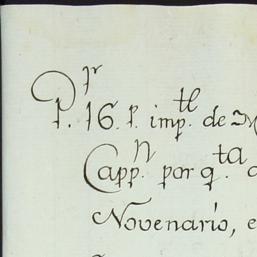 P.r 16. p. imp.tl de
Capp.n por q.ta
Novenario, e